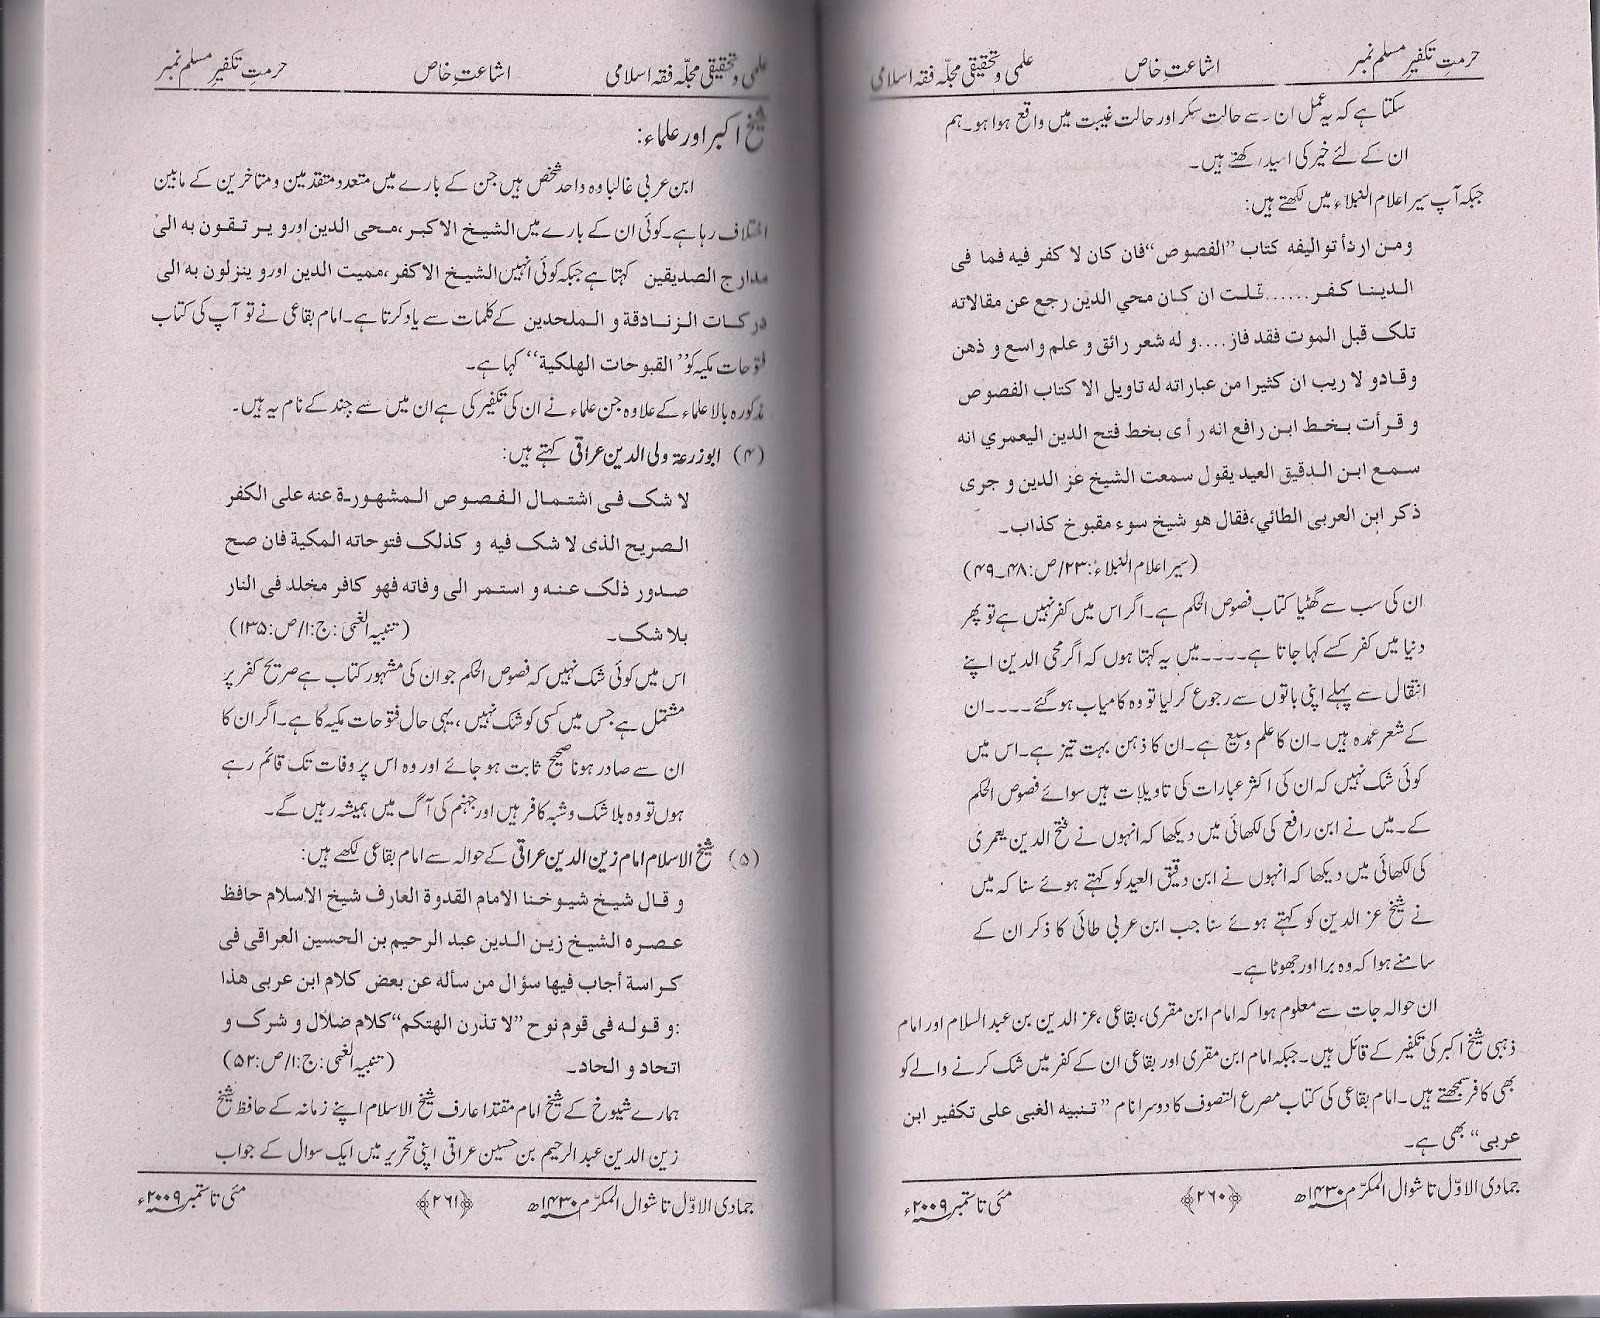 حرمتِ تکفیرِ مسلم نمبر اشاعتِ خاص علمی و تحقیقی مجلّہ فقہ اسلامی
سکتا ہے کہ یہ عمل ان سے حالت سکر اور حالت غیبت میں واقع ہوا ہو۔ ہم
ان کے لئے خیر کی امید رکھتے ہیں۔
جبکہ آپ سیر اعلام النبلاء میں لکھتے ہیں:
ومن اردأ تواليفه كتاب "الفصوص" فان كان لا كفر فيه فما فى
الدينا كفر......قلت ان كان محي الدين رجع عن مقالاته
تلك قبل الموت فقد فاز....و له شعر رائق و علم واسع و ذهن
وقادو لا ريب ان كثيرا من عباراته له تاويل الا كتاب الفصوص
و قرأت بخط ابن رافع انه رأى بخط فتح الدين اليعمري انه
سمع ابن الدقيق العيد يقول سمعت الشيخ عز الدين و جرى
ذكر ابن العربى الطائي،فقال هو شيخ سوء مقبوخ كذاب۔
(سیر اعلام النبلاء:۲۳/ص:۴۸۔۴۹)
ان کی سب سے گھٹیا کتاب فصوص الحکم ہے۔ اگر اس میں کفر نہیں ہے تو پھر
دنیا میں کفر کسے کہا جاتا ہے۔۔۔۔ میں یہ کہتا ہوں کہ اگر محی الدین اپنے
انتقال سے پہلے اپنی باتوں سے رجوع کرلیا تو وہ کامیاب ہوگئے۔۔۔۔ ان
کے شعر عمدہ ہیں۔ ان کا علم وسیع ہے۔ ان کا ذہن بہت تیز ہے۔ اس میں
کوئی شک نہیں کہ ان کی اکثر عبارات کی تاویلات ہیں سوائے فصوص الحکم
کے۔ میں نے ابن رافع کی لکھائی میں دیکھا کہ انہوں نے فتح الدین یعمری
کی لکھائی میں دیکھا کہ انہوں نے ابن دقیق العید کو کہتے ہوئے سنا کہ میں
نے شیخ عز الدین کو کہتے ہوئے سنا جب ابن عربی طائی کا ذکر ان کے
سامنے ہوا کہ وہ برا اور جھوٹا ہے۔
ان حوالہ جات سے معلوم ہوا کہ امام ابن مقری، بقاعی، عز الدین بن عبد السلام اور امام
ذہبی شیخ اکبر کی تکفیر کے قائل ہیں۔ جبکہ امام ابن مقری اور بقاعی ان کے کفر میں شک کرنے والے کو
بھی کافر سمجھتے ہیں۔ امام بقاعی کی کتاب مصرع التصوف کا دوسرا نام "تنبيه الغبى على تكفير ابن
عربى" بھی ہے۔
جمادی الاوّل تا شوال المکرّم ۱۴۳۰ھ ﴿۲۶۰﴾ مئی تا ستمبر ۲۰۰۹ء
علمی و تحقیقی مجلّہ فقہ اسلامی اشاعتِ خاص حرمتِ تکفیرِ مسلم نمبر
شیخ اکبر اور علماء:
ابن عربی غالبا وہ واحد شخص ہیں جن کے بارے میں متعدد متقدمین و متاخرین کے مابین
اختلاف رہا ہے۔ کوئی ان کے بارے میں الشيخ الاكبر،محى الدين اور و ير تقون به الى
مدارج الصديقين کہتا ہے جبکہ کوئی انہیں الشيخ الاكفر،مميت الدين اور و ينزلون به الى
دركات الزنادقة و الملحدين کے کلمات سے یاد کرتا ہے۔ امام بقاعی نے تو آپ کی کتاب
فتوحات مکیہ کو "القبوحات الهلكية" کہا ہے۔
مذکورہ بالا علماء کے علاوہ جن علماء نے ان کی تکفیر کی ہے ان میں سے چند کے نام یہ ہیں۔
(۴) ابوزرعۃ ولی الدین عراقی کہتے ہیں:
لا شك فى اشتمال الفصوص المشهورة عنه على الكفر
الصريح الذى لا شك فيه و كذلك فتوحاته المكية فان صح
صدور ذلك عنه و استمر الى وفاته فهو كافر مخلد فى النار
بلا شك۔ (تنبیہ الغبی:ج:۱/ص:۱۳۵)
اس میں کوئی شک نہیں کہ فصوص الحکم جو ان کی مشہور کتاب ہے صریح کفر پر
مشتمل ہے جس میں کسی کو شک نہیں، یہی حال فتوحات مکیہ کا ہے۔ اگر ان کا
ان سے صادر ہونا صحیح ثابت ہو جائے اور وہ اس پر وفات تک قائم رہے
ہوں تو وہ بلا شک و شبہ کافر ہیں اور جہنم کی آگ میں ہمیشہ رہیں گے۔
(۵) شیخ الاسلام امام زین الدین عراقی کے حوالہ سے امام بقاعی لکھے ہیں:
و قال شيخ شيوخنا الامام القدوة العارف شيخ الاسلام حافظ
عصره الشيخ زين الدين عبد الرحيم بن الحسين العراقى فى
كراسة أجاب فيها سؤال من سأله عن بعض كلام ابن عربى هذا
:و قوله فى قوم نوح "لا تذرن الهتكم" كلام ضلال و شرك و
اتحاد و الحاد۔ (تنبیہ الغبی:ج:۱/ص:۵۲)
ہمارے شیوخ کے شیخ امام مقتدا عارف شیخ الاسلام اپنے زمانہ کے حافظ شیخ
زین الدین عبد الرحیم بن حسین عراقی اپنی تحریر میں ایک سوال کے جواب
جمادی الاوّل تا شوال المکرّم ۱۴۳۰ھ ﴿۲۶۱﴾ مئی تا ستمبر ۲۰۰۹ء